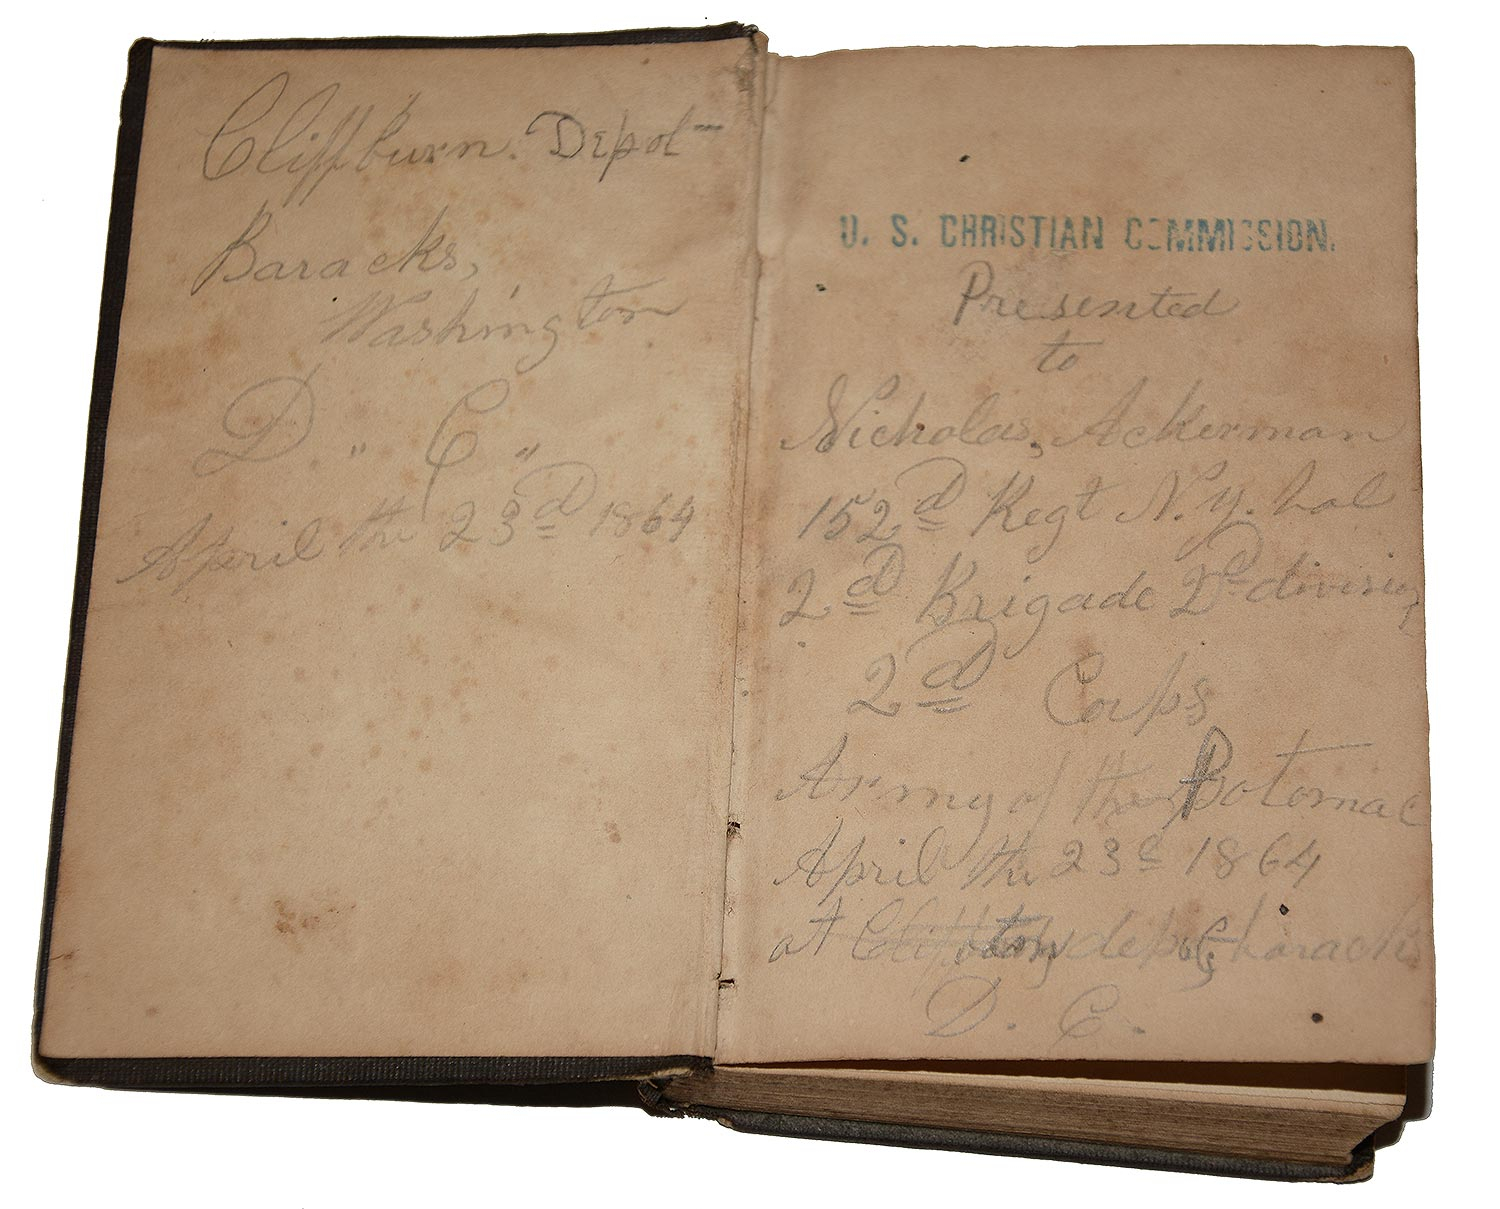 Cliffburn. Depot
Baracks,
Washington
D. " C "
April the 23d 1864
U. S. CHRISTIAN COMMISSION.
Presented
to
Nicholas, Ackerman
152d Regt N. Y. Vol
2d Brigade 2d division
2d Corps
Army of the Potomac
April the 23d 1864
at depot baracks
D. C.